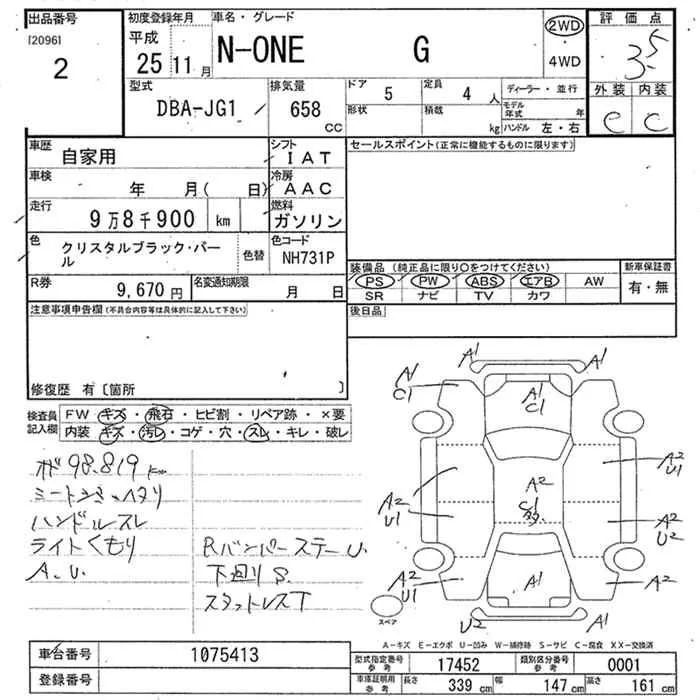 出品番号 初度登録年月 車名・グレード 評価点
[2096] 平成 N-ONE G 2WD 3.5
2 25 11月 4WD
外装 内装
型式 排気量 ドア 5 定員 4人 ディーラー・並行 e c
DBA-JG1 658 CC 形状 積載 kg モデル年式 年 ハンドル 左・右
車歴 自家用 シフト IAT セールスポイント(正常に機能するものに限ります)
車検 年 月( 日) 冷房 AAC
走行 9万8千900 km 燃料 ガソリン
色 クリスタルブラック・パール 色替 色コード NH731P
装備品 (純正品に限り○をつけてください) 新車保証書
PS PW ABS エアB AW 有・無
SR ナビ TV カワ
R券 9,670円 名変通知期限 月 日
後日品
注意事項申告欄(不具合内容等は具体的に記入して下さい)
修復歴 有〔箇所 〕
検査員記入欄 FW キズ・飛石・ヒビ割・リペア跡・×要
内装 キズ・汚レ・コゲ・穴・スレ・キレ・破レ
98.819 km
ハンドルスレ
ライトくもり RバンパーステーU.
A.U. 下廻りS.
スタットレスT
A1 A1
A1 C1 A1 C1
A2 U1
A2
A2 U1 S1 A2 U2
A2 U1 A1 A2
スペア U2 A1
A-キズ E-エクボ U-凹み W-補修跡 S-サビ C-腐食 XX-交換済
車台番号 1075413 型式指定番号 参考 17452 類別区分番号 参考 0001
登録番号 車庫証明用 参考 長さ 339cm 幅 147cm 高さ 161cm